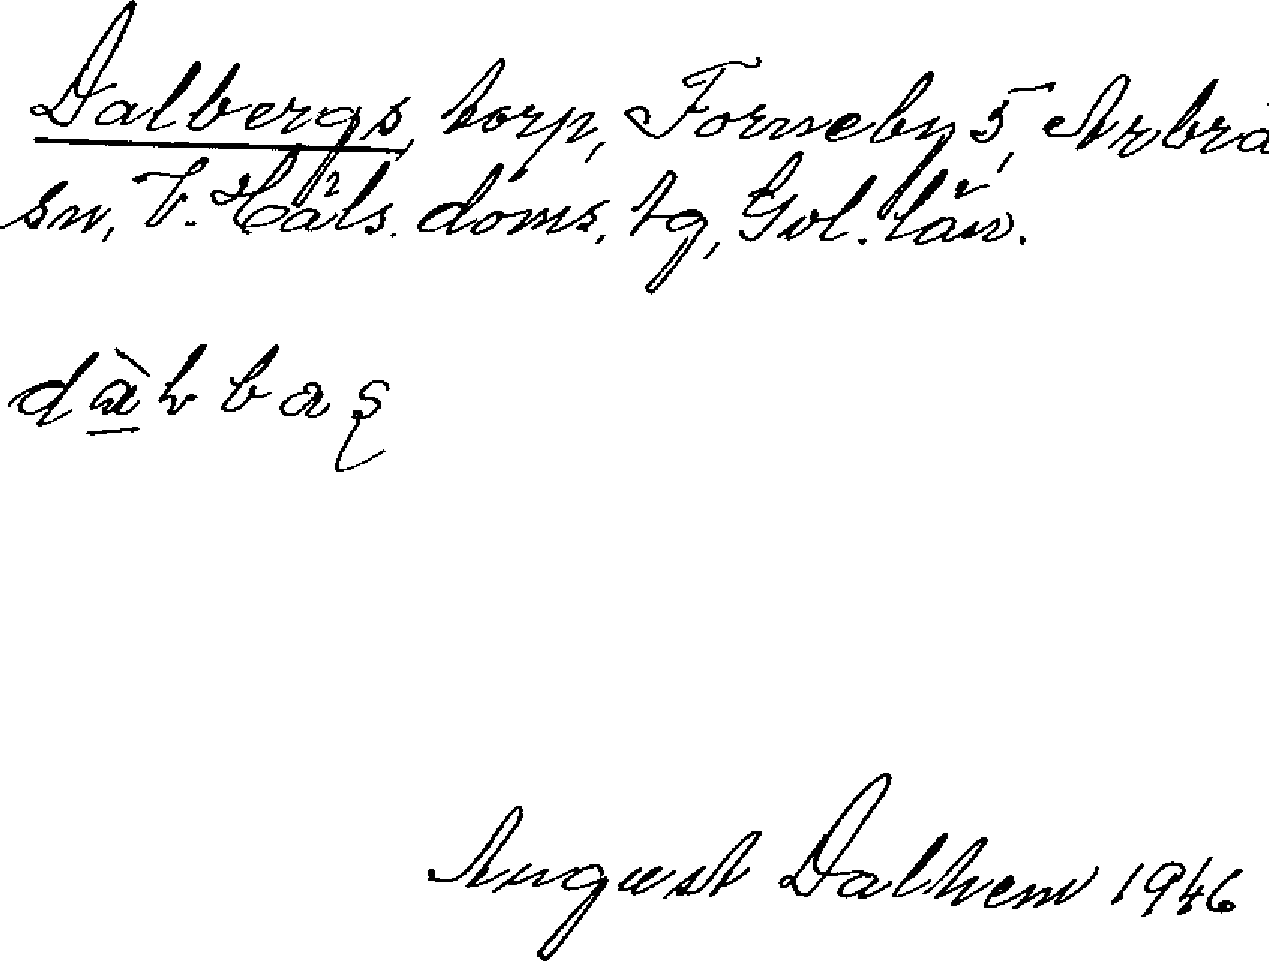 Dalbergs, torp, Forneby 5, Arbrå
sn, V. Häls. doms. tg, Gvl. län.
dàlbas
August Dalhem 1946